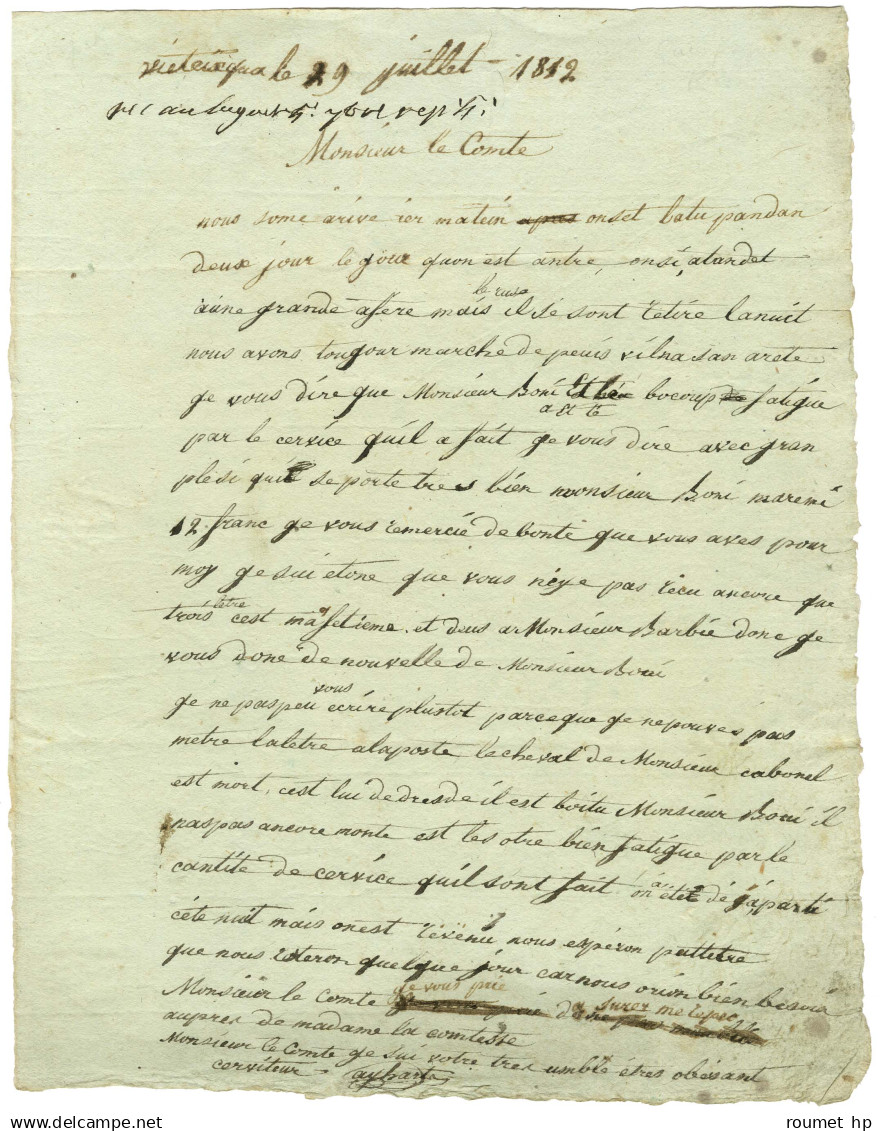 le 29 juillet 1812
Monsieur le Comte
nous some arive ier matein onset batu pandan
deuse jour le gour quon est antre, onsi atandet
aune grande afere mais le ruse il se sont retire lanuit
nous avons tougour marche de peuis vilna san arete
ge vous dire que Monsieur Boni a Et té bocoup fatigue
par le cervice quil a fait ge vous dire avec gran
plesi quil se porte tres bien monsieur Boni maremi
12 franc ge vous remercie de bonte que vous aves pour
moy ge sui etone que vous neye pas recu ancore que
trois letre cest ma setieme. et deus a Monsieur Barbie donc ge
vous done de nouvelle de Monsieur Boni
ge ne pas peu vous ecrire plustot parceque ge ne pouves pas
metre laletre alaposte le cheval de Monsieur cabonel
est mort, cest lui de dresde il est boitu Monsieur Boni il
naspas ancore monte est les otre bien fatigue par le
cantite de cervice quil sont fait on eté dé ja parti
céte nuit mais on est revenu nous esperon peutetre
que nous reteron quelque jour car nous orion bien besoin
Monsieur le Comte ge vous prie da surer me respec
aupres de madame la comtesse
Monsieur le Comte ge sui votre tres umble étres obésant
cerviteur